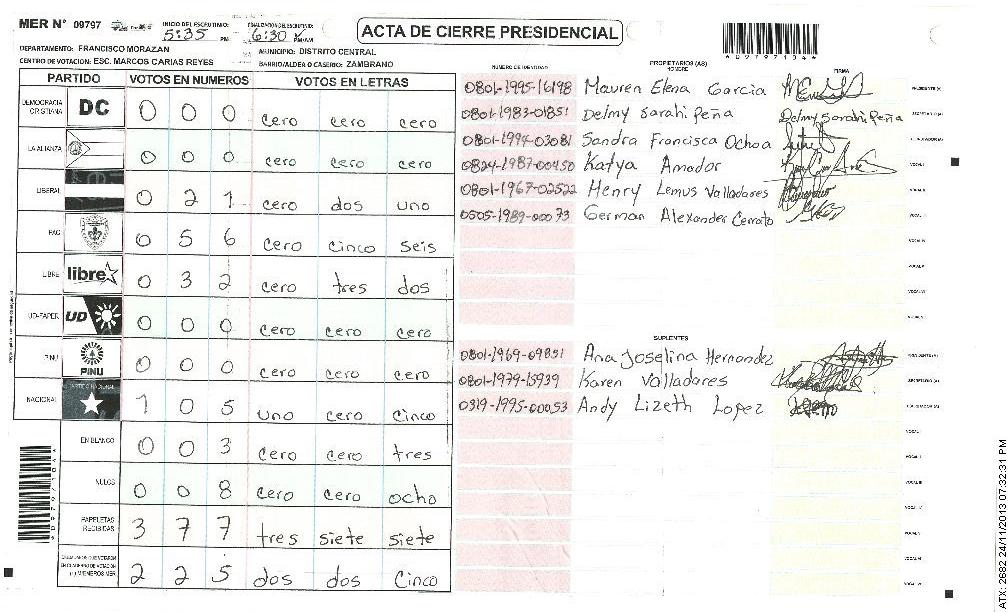 MER N° 09797
INICIO DEL ESCRUTINIO: 5:35 PM
FINALIZACION DEL ESCRUTINIO: 6:30 PM/AM
ACTA DE CIERRE PRESIDENCIAL
DEPARTAMENTO: FRANCISCO MORAZAN
MUNICIPIO: DISTRITO CENTRAL
CENTRO DE VOTACION: ESC. MARCOS CARIAS REYES
BARRIO/ALDEA O CASERIO: ZAMBRANO
PARTIDO VOTOS EN NUMEROS VOTOS EN LETRAS
DEMOCRACIA CRISTIANA DC 0 0 0 cero cero cero
LA ALIANZA 0 0 0 cero cero cero
LIBERAL 0 2 1 cero dos uno
PAC 0 5 6 cero cinco seis
LIBRE libre 0 3 2 cero tres dos
UD-FAPER UD 0 0 0 cero cero cero
PINU PINU 0 0 0 cero cero cero
NACIONAL 1 0 5 uno cero cinco
EN BLANCO 0 0 3 cero cero tres
NULOS 0 0 8 cero cero ocho
PAPELETAS RECIBIDAS 3 7 7 tres siete siete
2 2 5 dos dos cinco
NUMERO DE IDENTIDAD PROPIETARIOS (AS) NOMBRE FIRMA
0801-1995-16198 Mauren Elena Garcia
0801-1983-01851 Delmy Sarahi Peña Delmy Sarahi Peña
0801-1994-03081 Sandra Francisca Ochoa
0824-1987-00450 Katya Amador
0801-1967-02522 Henry Lemus Valladares
0505-1989-00073 German Alexander Cerrato
SUPLENTES
0801-1969-09851 Ana Joselina Hernandez
0801-1979-15939 Karen Valladares
0319-1995-00053 Andy Lizeth Lopez
ATX: 2682 24/11/2013 07:32:31 PM